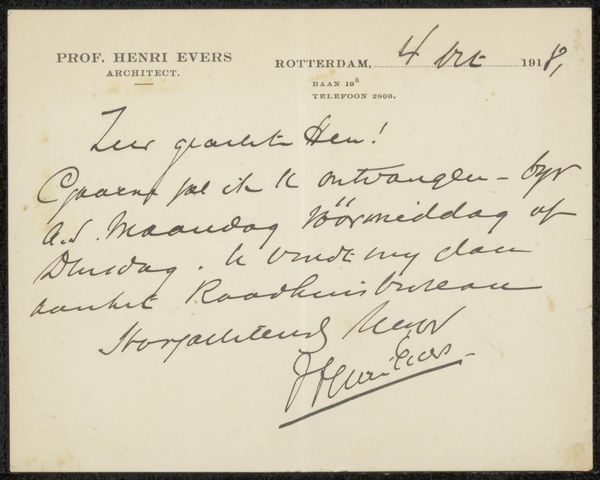 PROF. HENRI EVERS
ARCHITECT.
ROTTERDAM, 4 Oct 1918,
BAAN 19a
TELEFOON 2800.
Zeer geachte Heer!
Gaarne zal ik U ontvangen - bijv
a.s. Maandag vóórmiddag of
Dinsdag. U vindt mij dan
aan het Raadhuisbureau
Hoogachtend
JHenri Evers